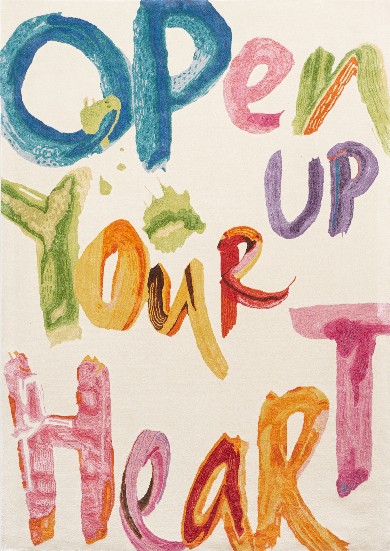 OPen
UP
Your
HeaRT